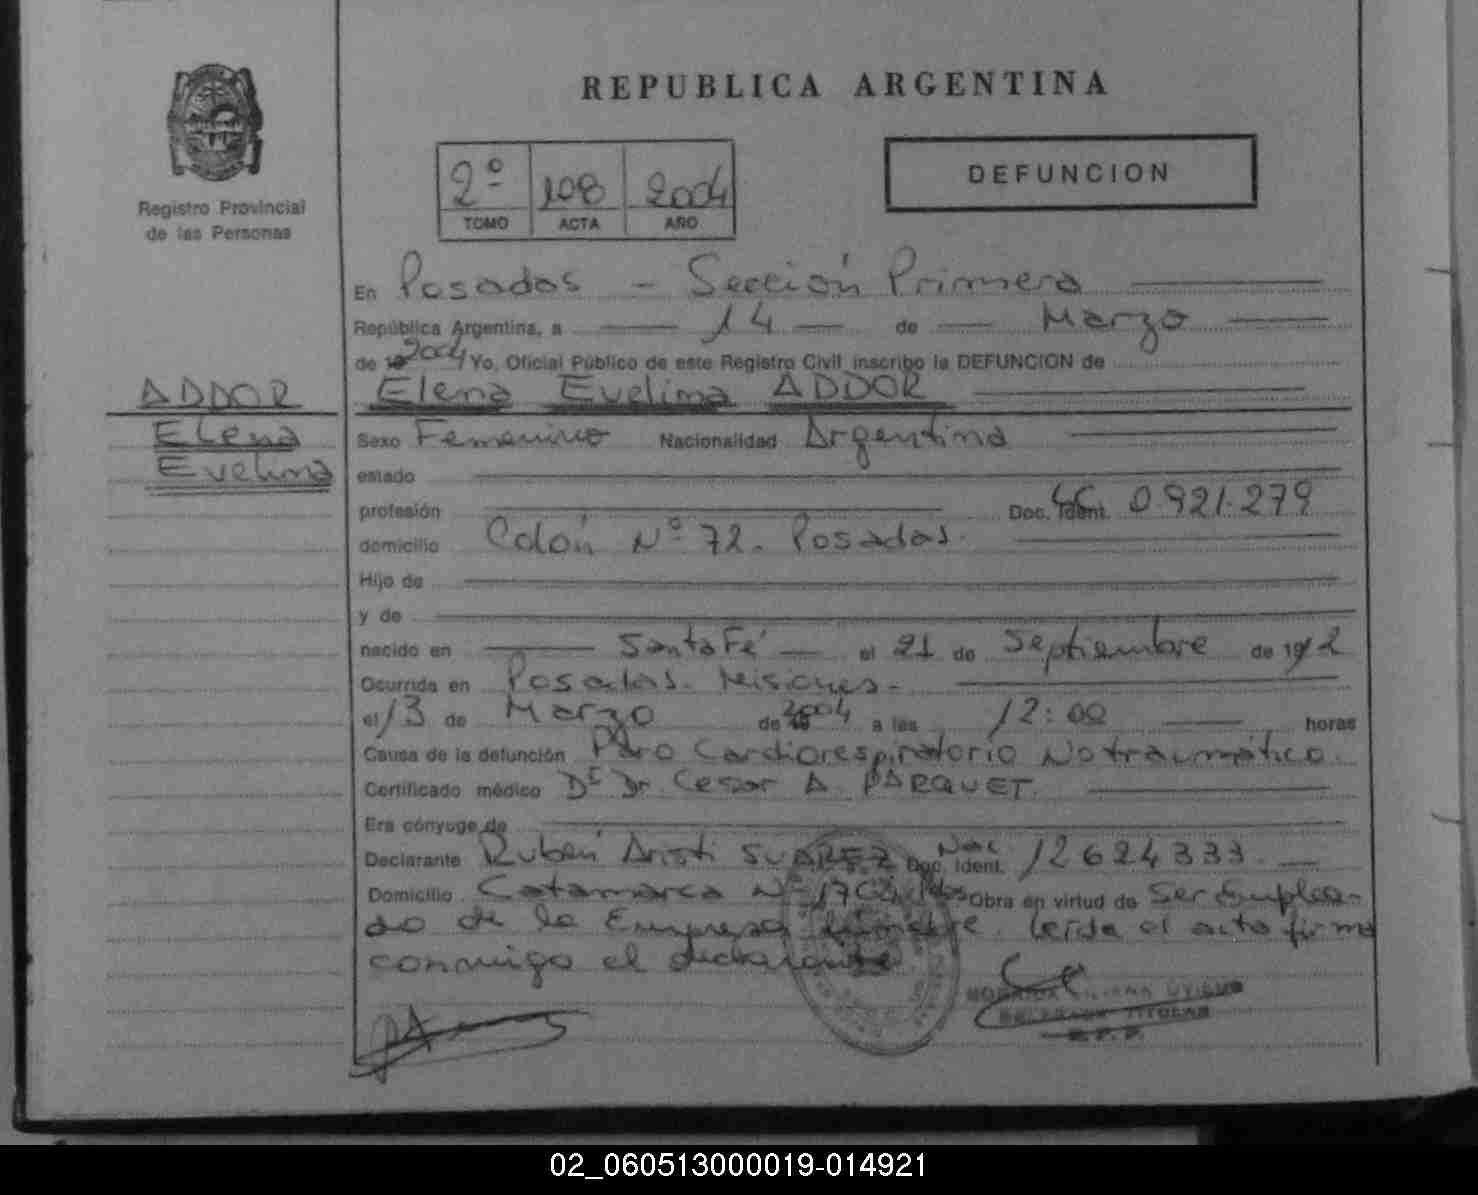 REPUBLICA ARGENTINA
Registro Provincial
de las Personas
2º 108 2004
TOMO ACTA AÑO
DEFUNCION
En Posadas - Sección Primera
República Argentina, a 14 de Marzo
de 2004 Yo, Oficial Público de este Registro Civil inscribo la DEFUNCION de
ADDOR
Elena Evelina ADDOR
Elena
Evelina
Sexo Femenino Nacionalidad Argentina
estado
profesión Doc. Ident. LC 0.921.279
domicilio Colón Nº 72. Posadas.
Hijo de
y de
nacido en Santa Fé el 21 de Septiembre de 1912
Ocurrida en Posadas. Misiones.-
el 13 de Marzo de 2004 a las 12:00 horas
Causa de la defunción Paro Cardiorespiratorio No traumático.
Certificado médico De Dr Cesar A PARQUET.
Era cónyuge de
Declarante Rubén Aristi SUAREZ Doc. Ident. 12624333.
Domicilio Catamarca Nº Obra en virtud de Ser Emplea-
do de la Empresa fúnebre. Leída el acta firma
conmigo el declarante
TITULAR
R.P.P.
02_060513000019-014921